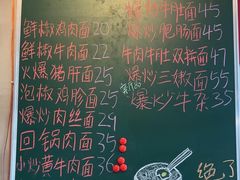 鲜椒鸡肉面20
鲜椒牛肉面22
火爆猪肝面25
泡椒鸡胗面25
爆炒肉丝面29
回锅肉面35
小炒黄牛肉面36
爆炒牛肚面45
爆炒肥肠面45
牛肉牛肚双拼面47
爆炒三嫩面55
爆炒牛杂35
绝了